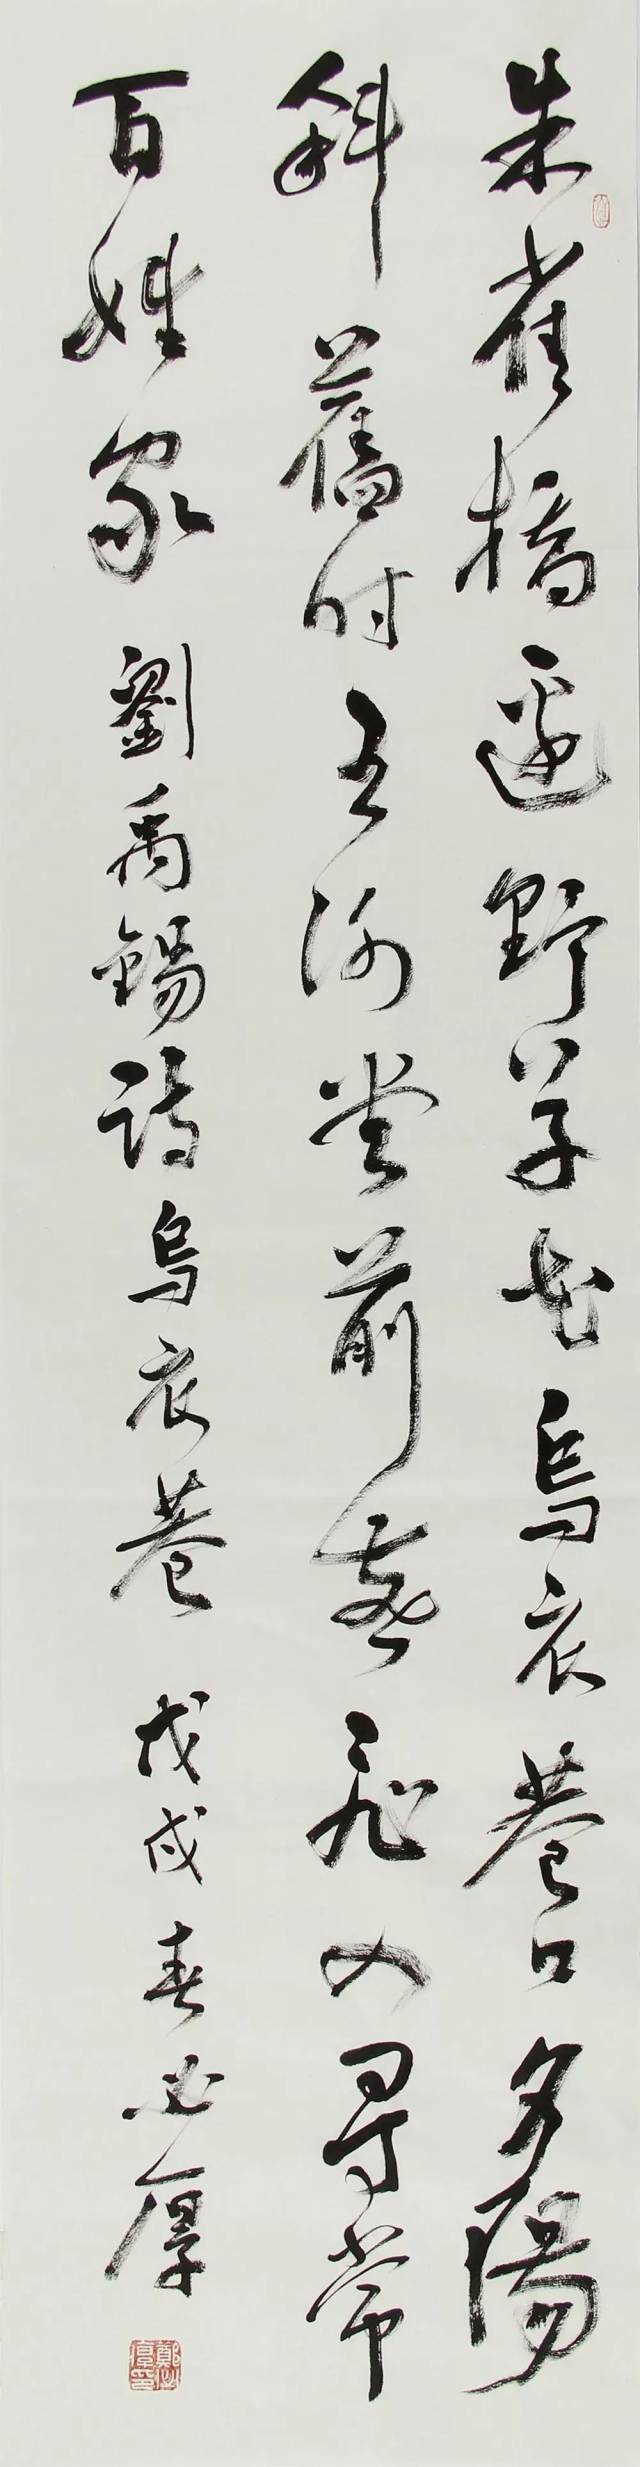 朱雀橋邊野草花烏衣巷口夕陽
斜舊時王謝堂前燕飛入尋常
百姓家劉禹錫詩烏衣巷戊戌春必厚